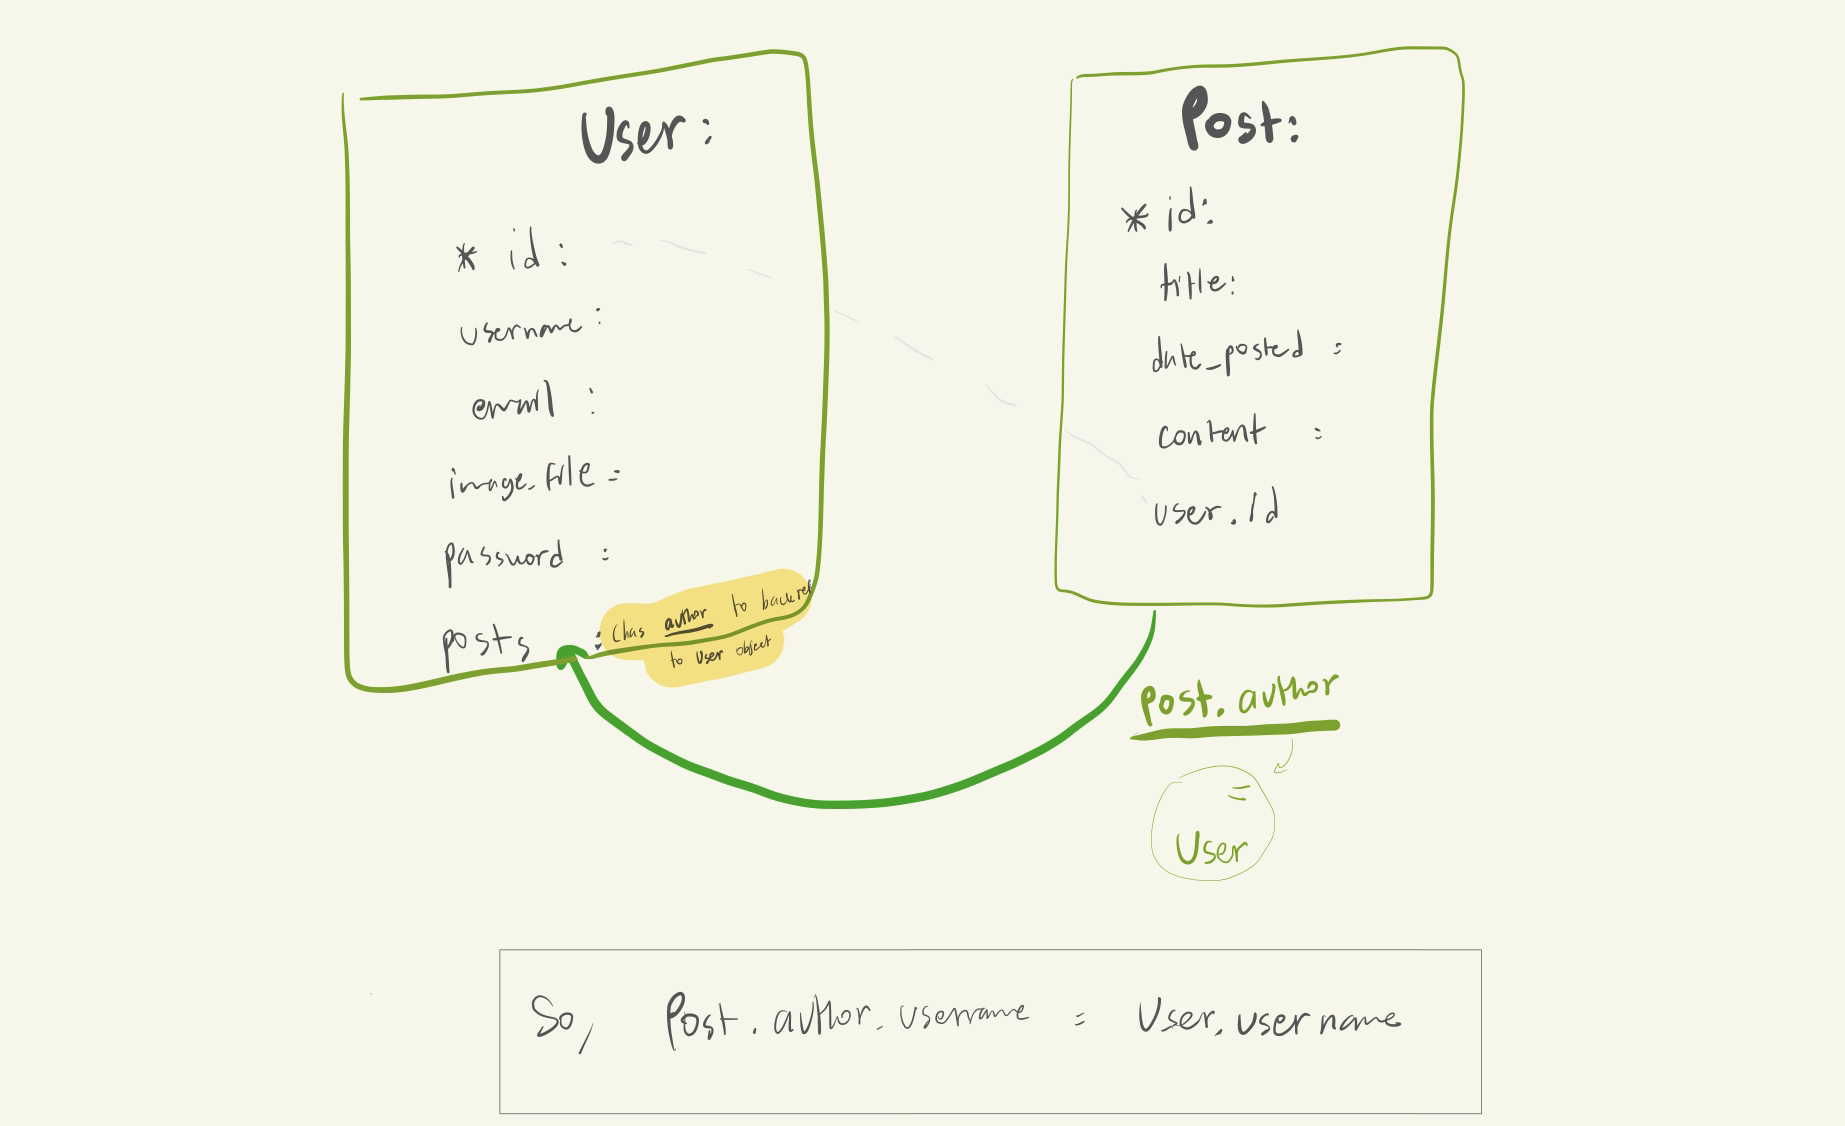 User:
* id:
username:
email :
image_file =
password :
posts :
(has author to backref
to User object
Post:
* id:
title:
date_posted =
content =
user.id
Post. author
=
User
So, Post. author. username = User. username